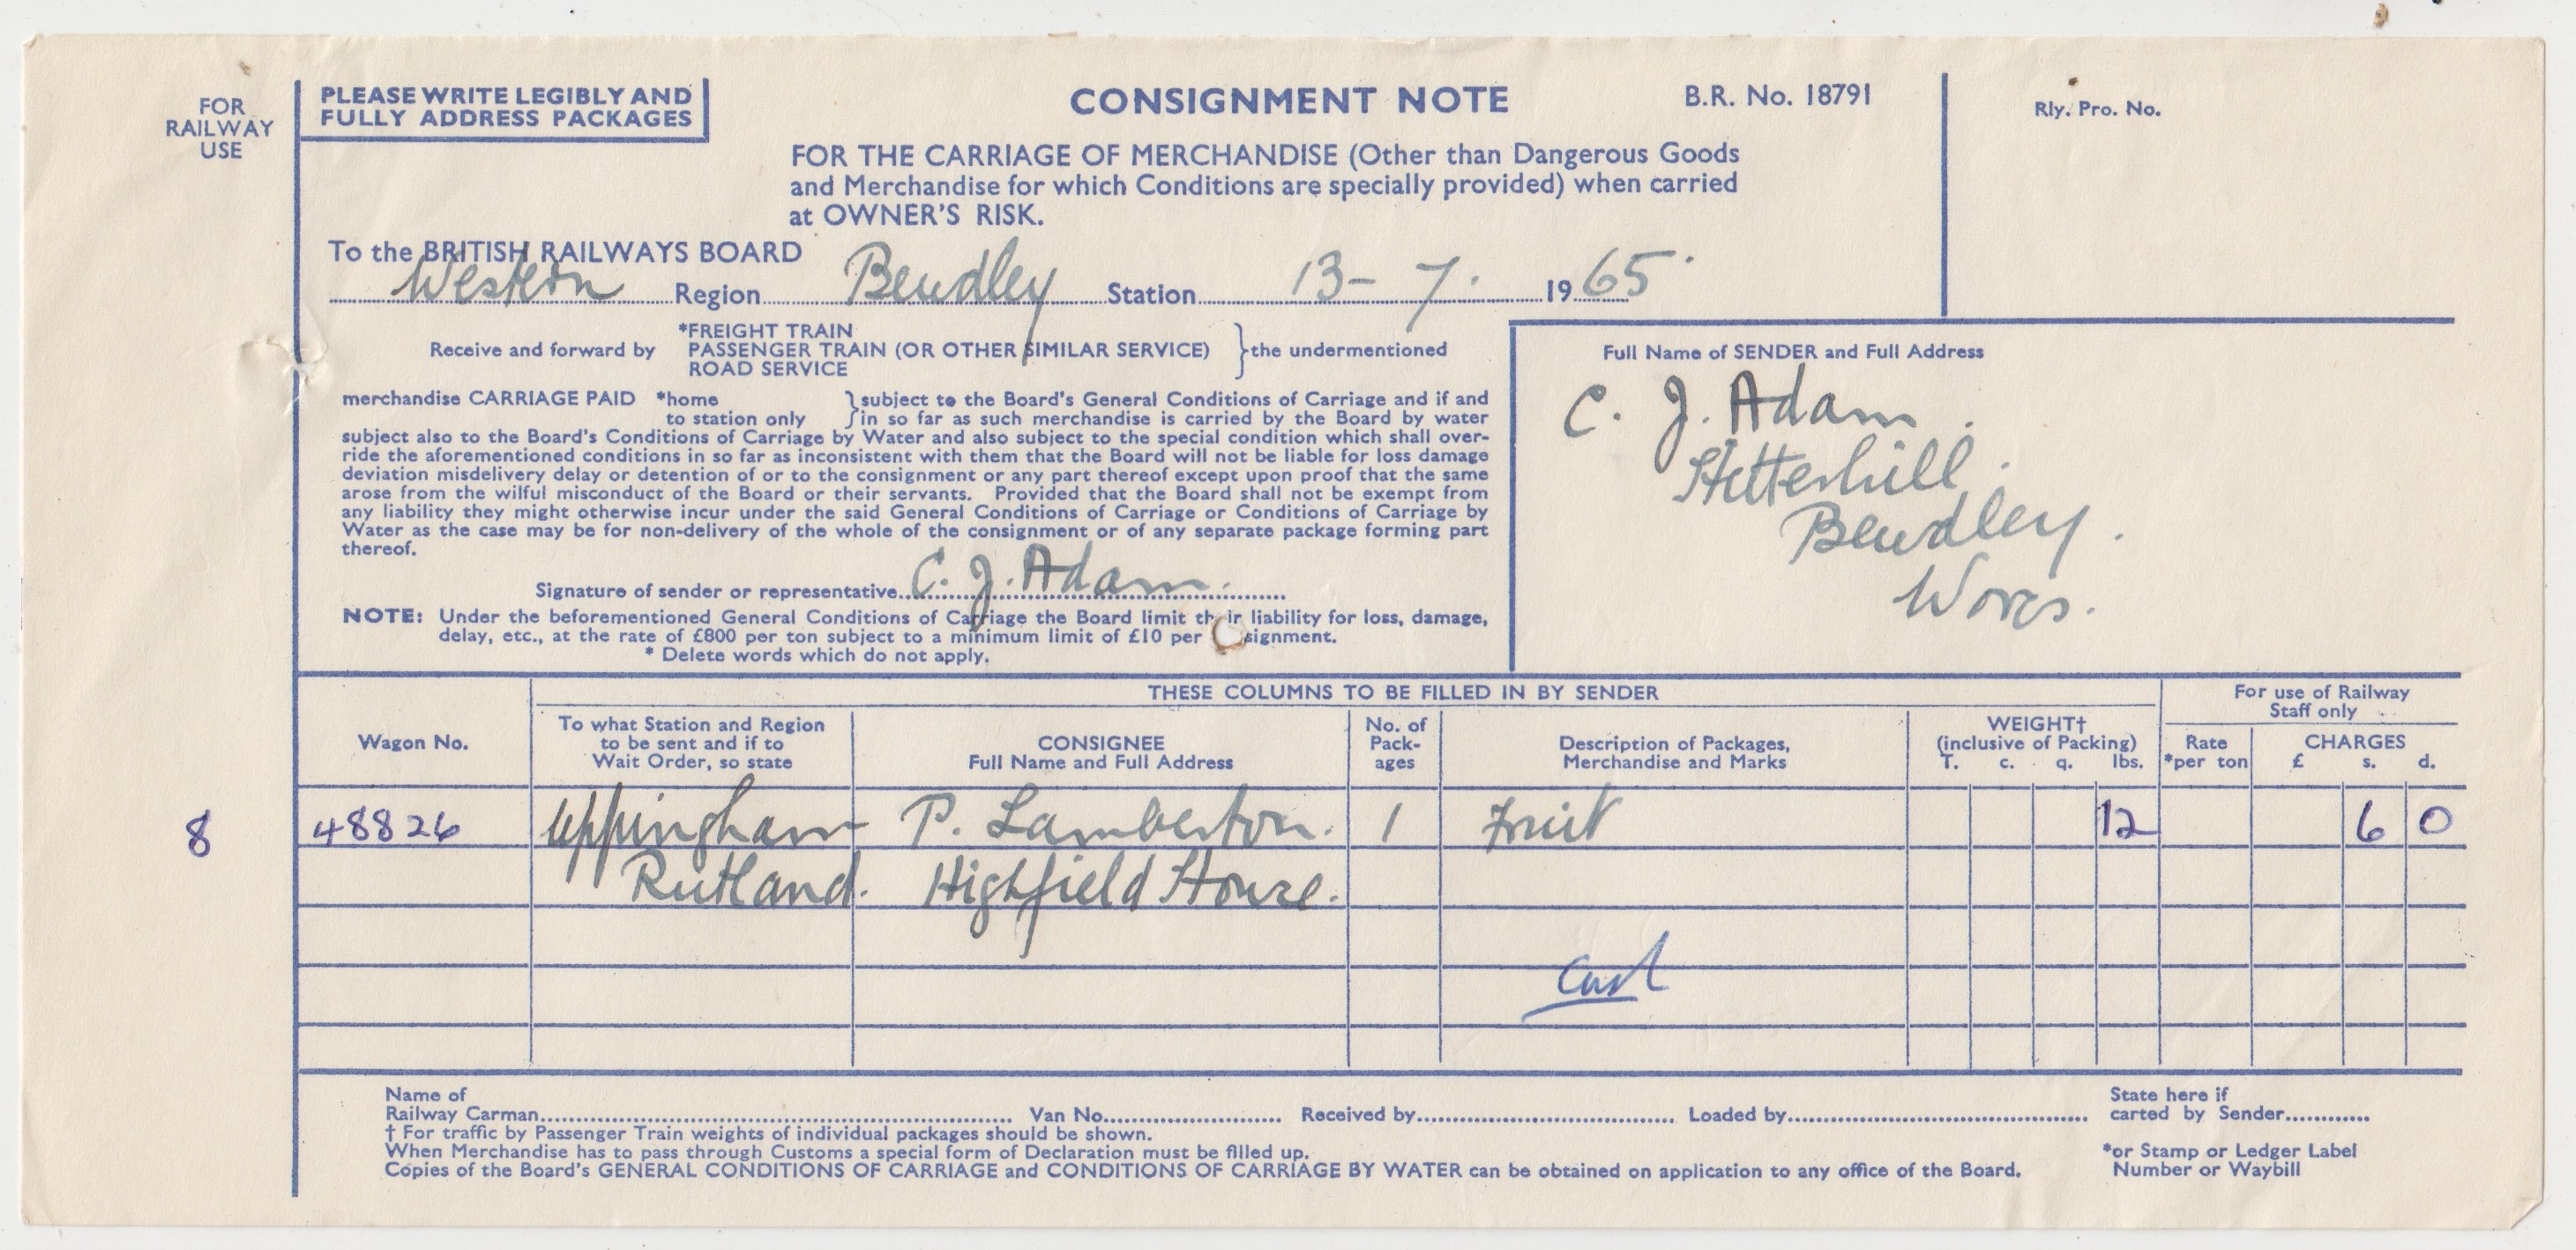 FOR
RAILWAY
USE
PLEASE WRITE LEGIBLY AND
FULLY ADDRESS PACKAGES
CONSIGNMENT NOTE
B.R. No. 18791
Rly. Pro. No.
FOR THE CARRIAGE OF MERCHANDISE (Other than Dangerous Goods
and Merchandise for which Conditions are specially provided) when carried
at OWNER'S RISK.
To the BRITISH RAILWAYS BOARD
Western Region Bewdley Station 13-7. 1965.
Receive and forward by
*FREIGHT TRAIN
PASSENGER TRAIN (OR OTHER SIMILAR SERVICE)
ROAD SERVICE
} the undermentioned
merchandise CARRIAGE PAID *home } subject to the Board's General Conditions of Carriage and if and
to station only } in so far as such merchandise is carried by the Board by water
subject also to the Board's Conditions of Carriage by Water and also subject to the special condition which shall over-
ride the aforementioned conditions in so far as inconsistent with them that the Board will not be liable for loss damage
deviation misdelivery delay or detention of or to the consignment or any part thereof except upon proof that the same
arose from the wilful misconduct of the Board or their servants. Provided that the Board shall not be exempt from
any liability they might otherwise incur under the said General Conditions of Carriage or Conditions of Carriage by
Water as the case may be for non-delivery of the whole of the consignment or of any separate package forming part
thereof.
Signature of sender or representative C. J. Adam.
NOTE: Under the beforementioned General Conditions of Carriage the Board limit their liability for loss, damage,
delay, etc., at the rate of £800 per ton subject to a minimum limit of £10 per signment.
* Delete words which do not apply.
Full Name of SENDER and Full Address
C. J. Adam.
Bewdley.
Worcs.
THESE COLUMNS TO BE FILLED IN BY SENDER
For use of Railway
Staff only
Wagon No.
To what Station and Region
to be sent and if to
Wait Order, so state
CONSIGNEE
Full Name and Full Address
No. of
Pack-
ages
Description of Packages,
Merchandise and Marks
WEIGHT†
(inclusive of Packing)
T. c. q. lbs.
Rate
*per ton
CHARGES
£ s. d.
8 48826 Uppingham P. Lamberton. 1 Fruit 12 6 0
Rutland. Highfield House.
Name of
Railway Carman Van No. Received by Loaded by
State here if
carted by Sender
† For traffic by Passenger Train weights of individual packages should be shown.
When Merchandise has to pass through Customs a special form of Declaration must be filled up.
Copies of the Board's GENERAL CONDITIONS OF CARRIAGE and CONDITIONS OF CARRIAGE BY WATER can be obtained on application to any office of the Board.
*or Stamp or Ledger Label
Number or Waybill